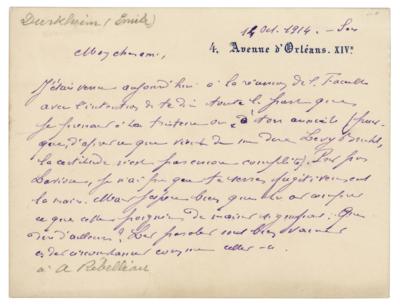 Durkheim (Emile)
12 oct. 1914. – Soir
4, Avenue d'Orléans. XIVᵉ
Mon cher ami,
J'étais venu aujourd'hui à la réunion de la Faculté
avec l'intention de te dire toute la part que
je prenais à ta tristesse ou à ton anxiété (puis-
que, d'après ce que vient de me dire Levy Bruhl,
la certitude n'est pas encore complète). Par
je n'ai pu que te serrer fugitivement
la main. Mais je sais bien que tu as compris
ce que cette poignée de main signifiait. Que
dire d'ailleurs? Les paroles sont bien vaines
en des circonstances comme celles-ci.
à A Rébelliau